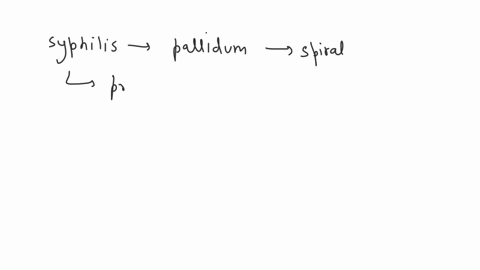 syphilis → pallidum → spiral
↳ pr